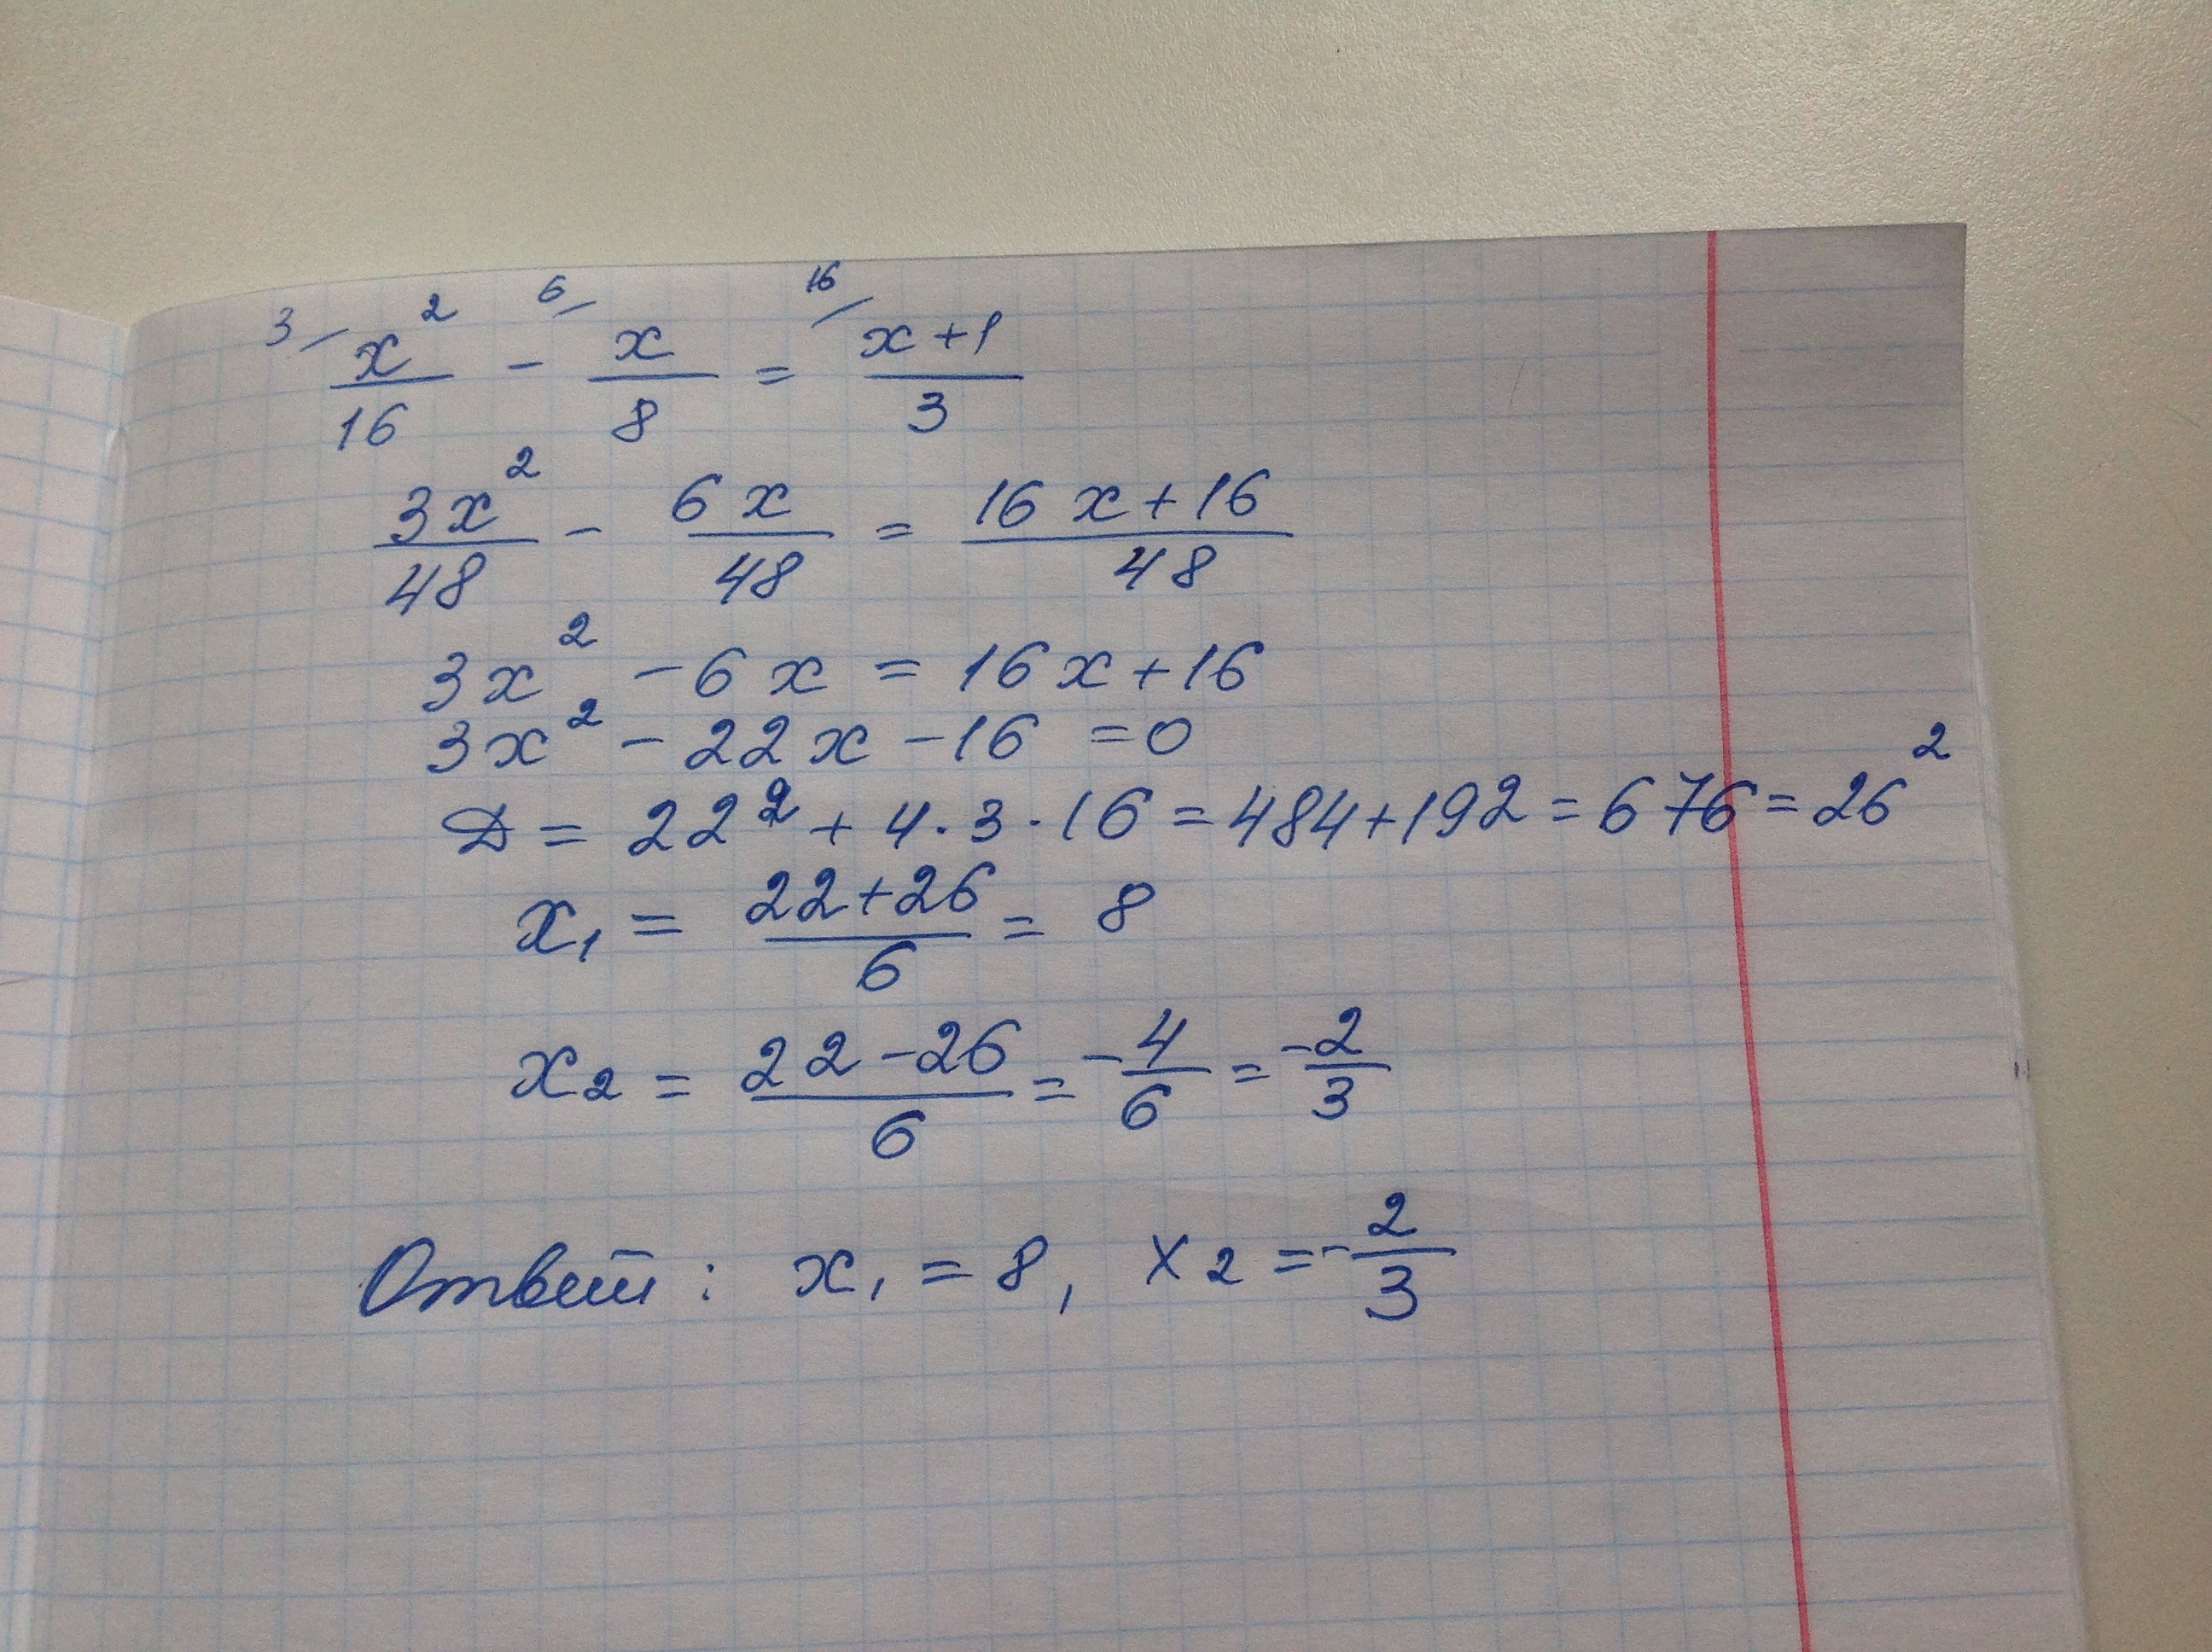 3/ x²/16 - 6/ x/8 = 16/ (x+1)/3
3x²/48 - 6x/48 = (16x+16)/48
3x² - 6x = 16x+16
3x² - 22x - 16 = 0
Д = 22² + 4·3·16 = 484+192 = 676 = 26²
x₁ = (22+26)/6 = 8
x₂ = (22-26)/6 = -4/6 = -2/3
Ответ: x₁ = 8, x₂ = -2/3